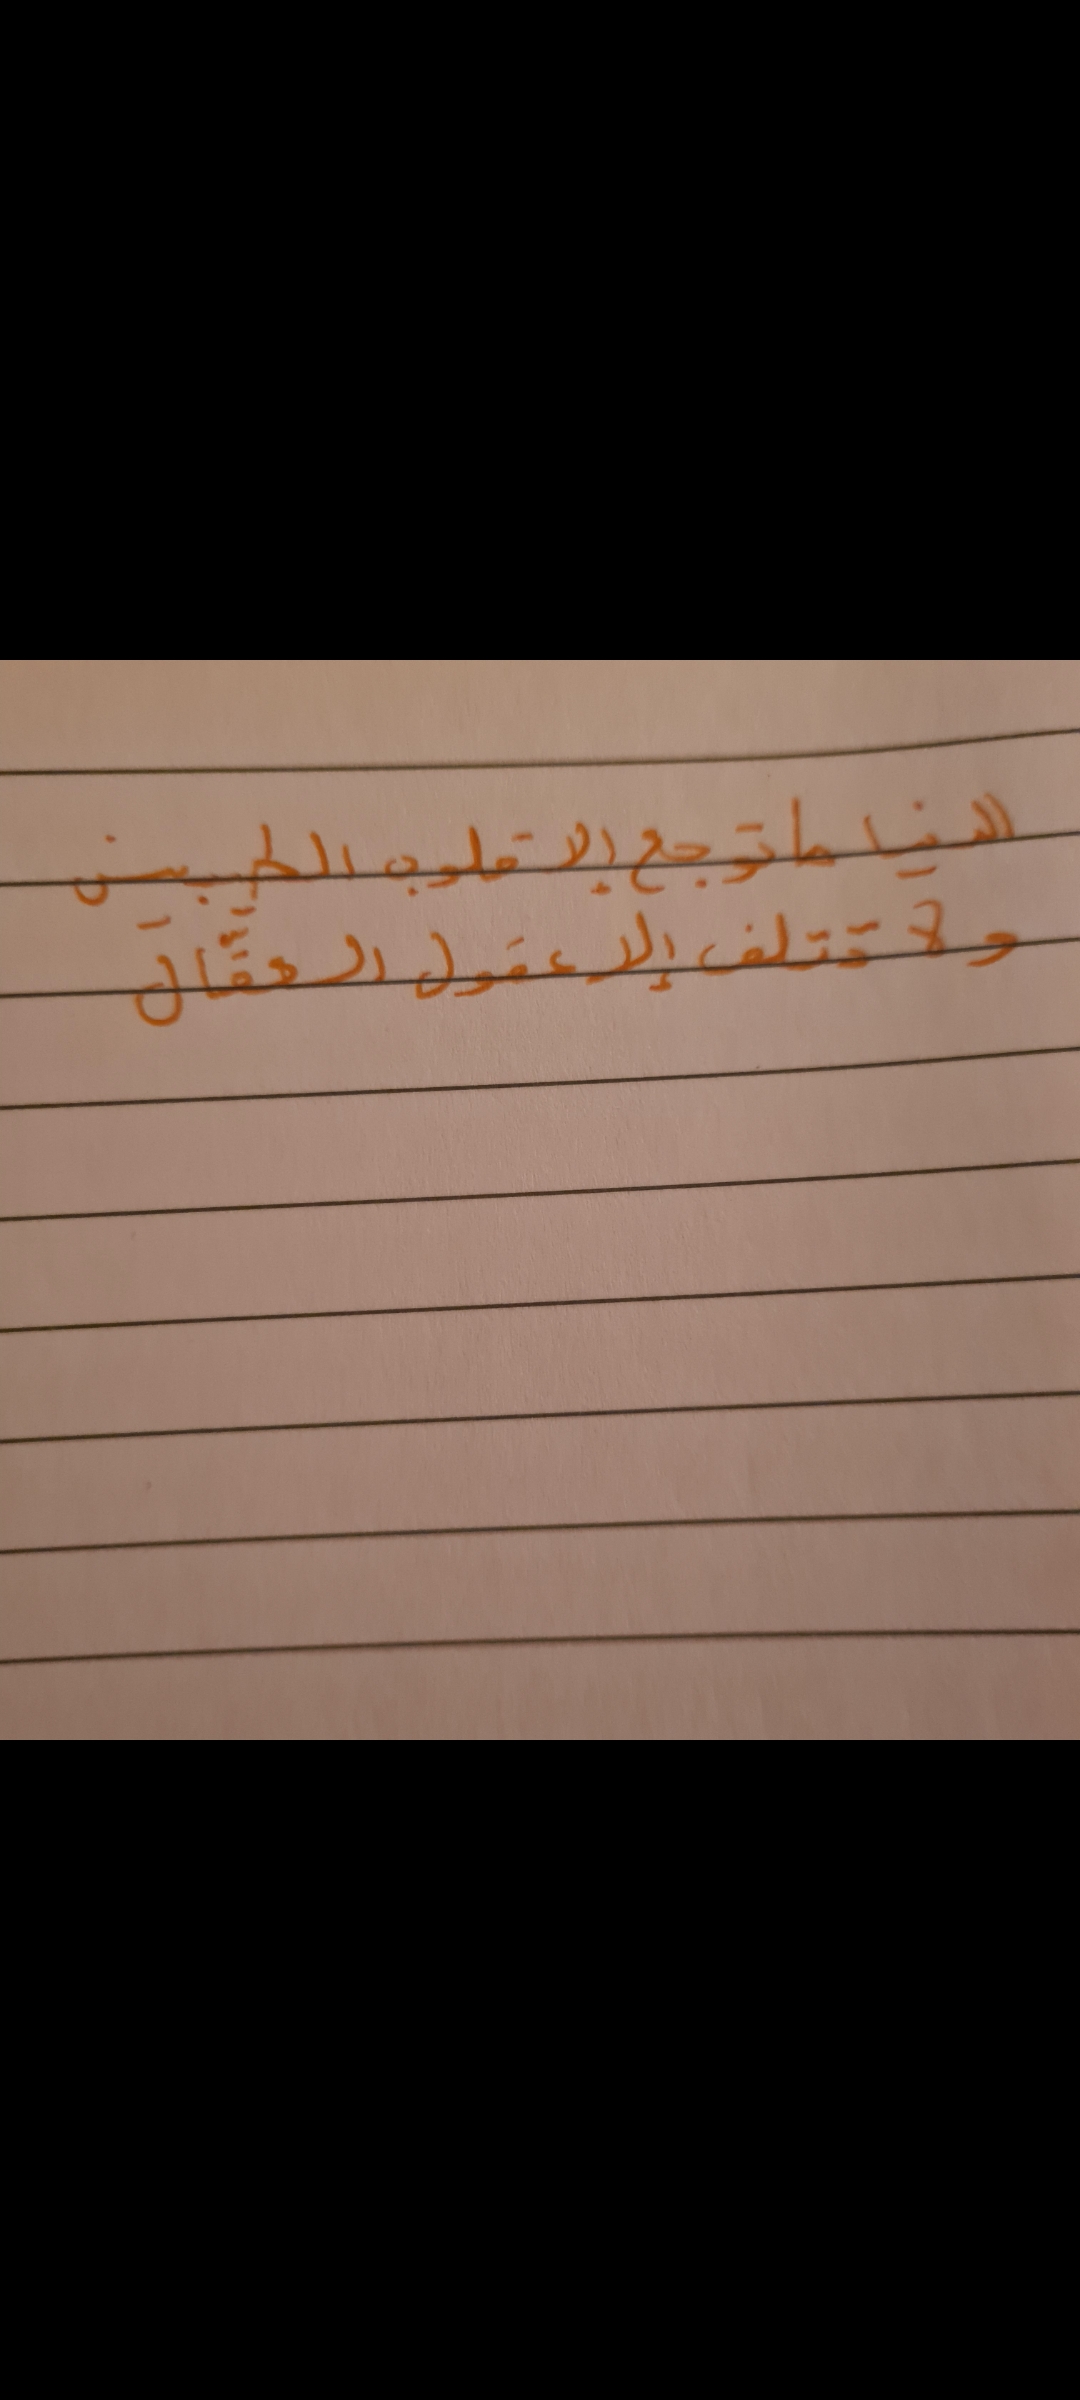 الدنيا ما توجع إلا قلوب الطيبين
ولا تتلف إلا عقول العقَّال